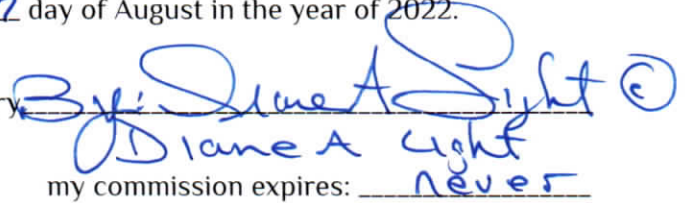 day of August in the year of 2022.
By: Diane A Light ©
Diane A Light
my commission expires: never